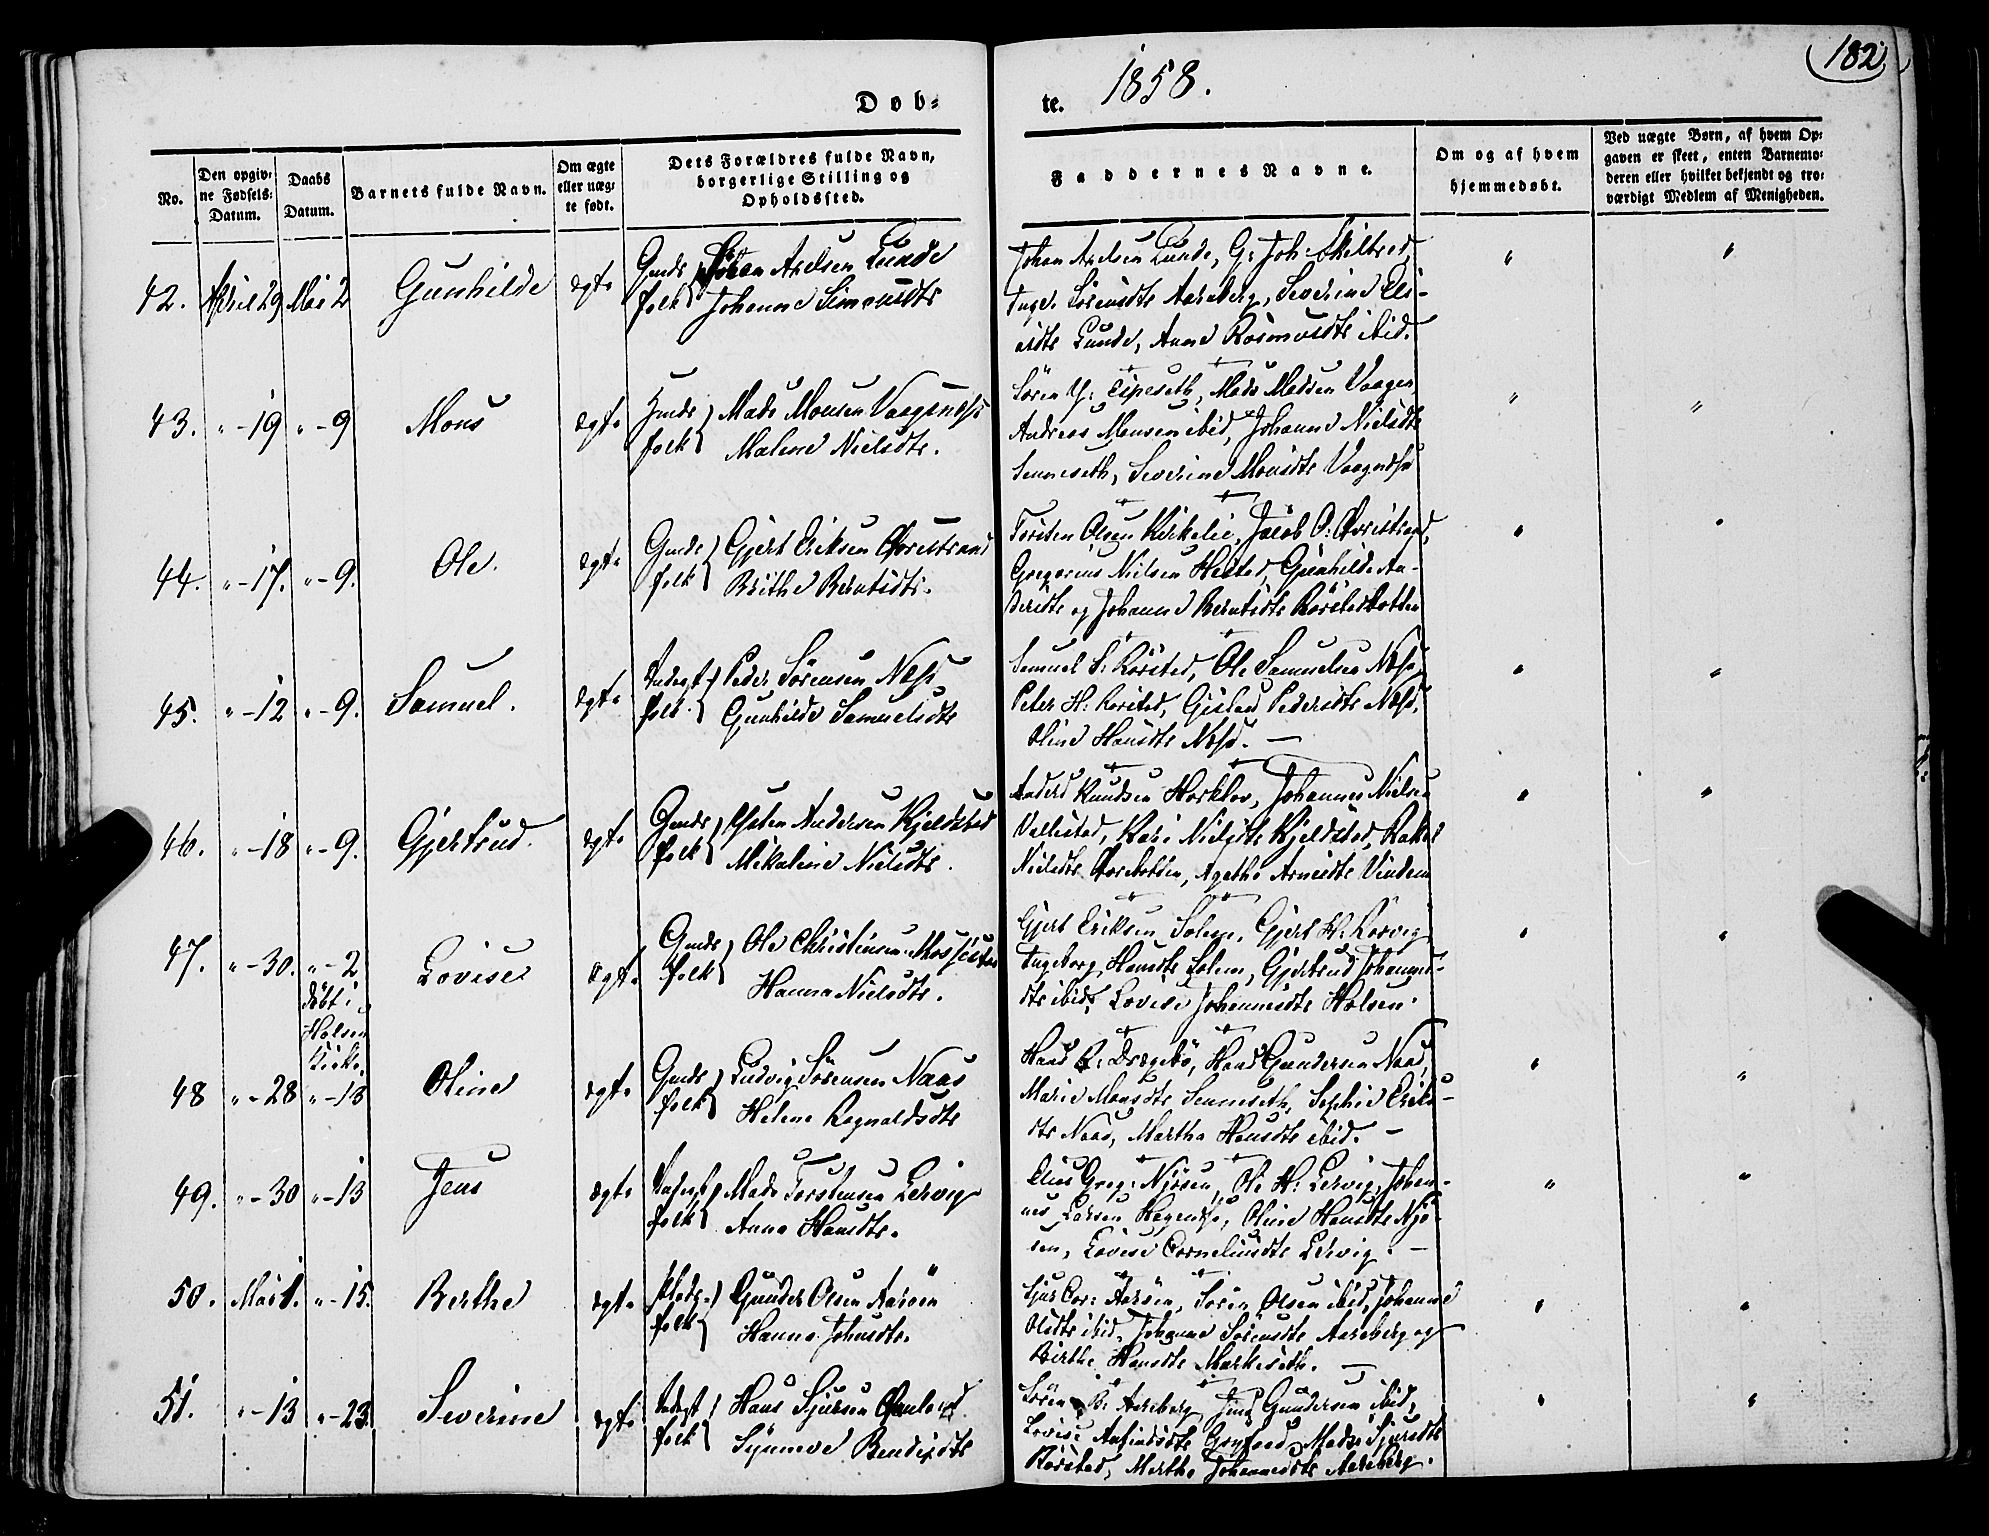 182
Døb=
te. 1858.
No.
Den opgiv=
ne Fødsels=
Datum.
Daabs
Datum.
Barnets fulde Navn.
Om ægte
eller uæg=
te født.
Dets Forældres fulde Navn,
borgerlige Stilling og
Opholdssted.
Faddernes Navne.
Om og af hvem
hjemmedøbt.
Ved uægte Børn, af hvem Op=
gaven er skeet, enten Barnemo=
deren eller hvilket bekjendt og tro=
værdigt Medlem af Menigheden.
42. April 29 Mai 2 Gunhilde ægte
Gmds folk Johan Axelsen Lunde
Johanne Simonsdtr
Johan Axelsen Lunde, G: Joh:
Sørensdtr Aareberg, Severine Eli-
asdtr Lunde, Anne Rasmusdtr ibid.
43. " - 19 " - 9 Mons ægte
Hmds folk Mads Monsen Vaagenæs
Malene Nielsdtr.
Søren Espeseth, Mads Madsen Vaagen
Andreas Monsen ibid, Johanne Nielsdtr
Senneseth, Severine Monsdtr Vaagenæs
44. " - 17. " - 9. Ole. ægte
Gmds folk Gjert Eriksen
Brithe Berntsdtr.
Torsten Olsen Kirkelie, Jacob O:
Gregorius Nielsen Hestad, Gunhilde An-
dersdtr og Johanne Berntsdtr
45. " - 12 " - 9. Samuel. ægte
Inderst folk Peder Sørensen Næss
Gunhilde Samuelsdtr
Samuel S: Rørstad, Ole Samuelsen Næss,
Peter H: Rørstad, Pedersdtr Næss,
Oline Hansdtr Næss. —
46. " - 18 " - 9. Gjertrud. ægte
Gmds folk Andersen Kjeldstad
Mikaline Nielsdtr.
Anders Knudsen Horklov, Johannes Nielsen
Vallestad, Kari Nielsdtr Kjeldstad, Rakel
Nielsdtr Agathe Arnesdtr
47. " - 30. " - 2 Lovise ægte
døbt i
Holsen
Kirke.
Gmds folk Ole Christensen
Hanna Nielsdtr.
Gjert Eriksen Solem, Gjert H: Rørvig,
Ingeborg Hansdtr Solem, Gjertrud Johannes-
dtr ibid, Lovise Johannesdtr Holsen.
48 " - 28 " - 13 Oline ægte
Gmds folk Ludvig Sørensen Naas
Helene Ragnaldsdtr
Hans R: Drægebø, Hans Gundersen Naas,
Marie Monsdtr Senneseth, Sophie Eriks-
dtr Naas, Martha Hansdtr ibid. —
49. " - 30 " - 13 Jens ægte
Inderst folk Mads Torstensen Lervig
Anna Hansdtr.
Elias Greg: Njøsen, Ole H: Lervig, Johan-
nes Larsen Oline Hansdtr Njø-
sen, Lovise Corneliusdtr Lervig. —
50. Mai 1. " - 15. Berthe ægte
Plads folk Gunder Olsen Aarøen
Hanna Johnsdtr.
Sjur Cor: Aarøen, Søren Olsen ibid, Johanne
Olsdtr ibid, Johanne Sørensdtr Aareberg og
Birthe Hansdtr Markeseth. —
51. " - 13 " - 23. Severine ægte
Inderst folk Hans Sjursen
Synneve Bendixdtr
Søren B: Aareberg, Jens Gundersen ibid,
Lovise Anfindsdtr Madse Sjursdtr
Rørstad, Marthe Johannesdtr Aareberg.